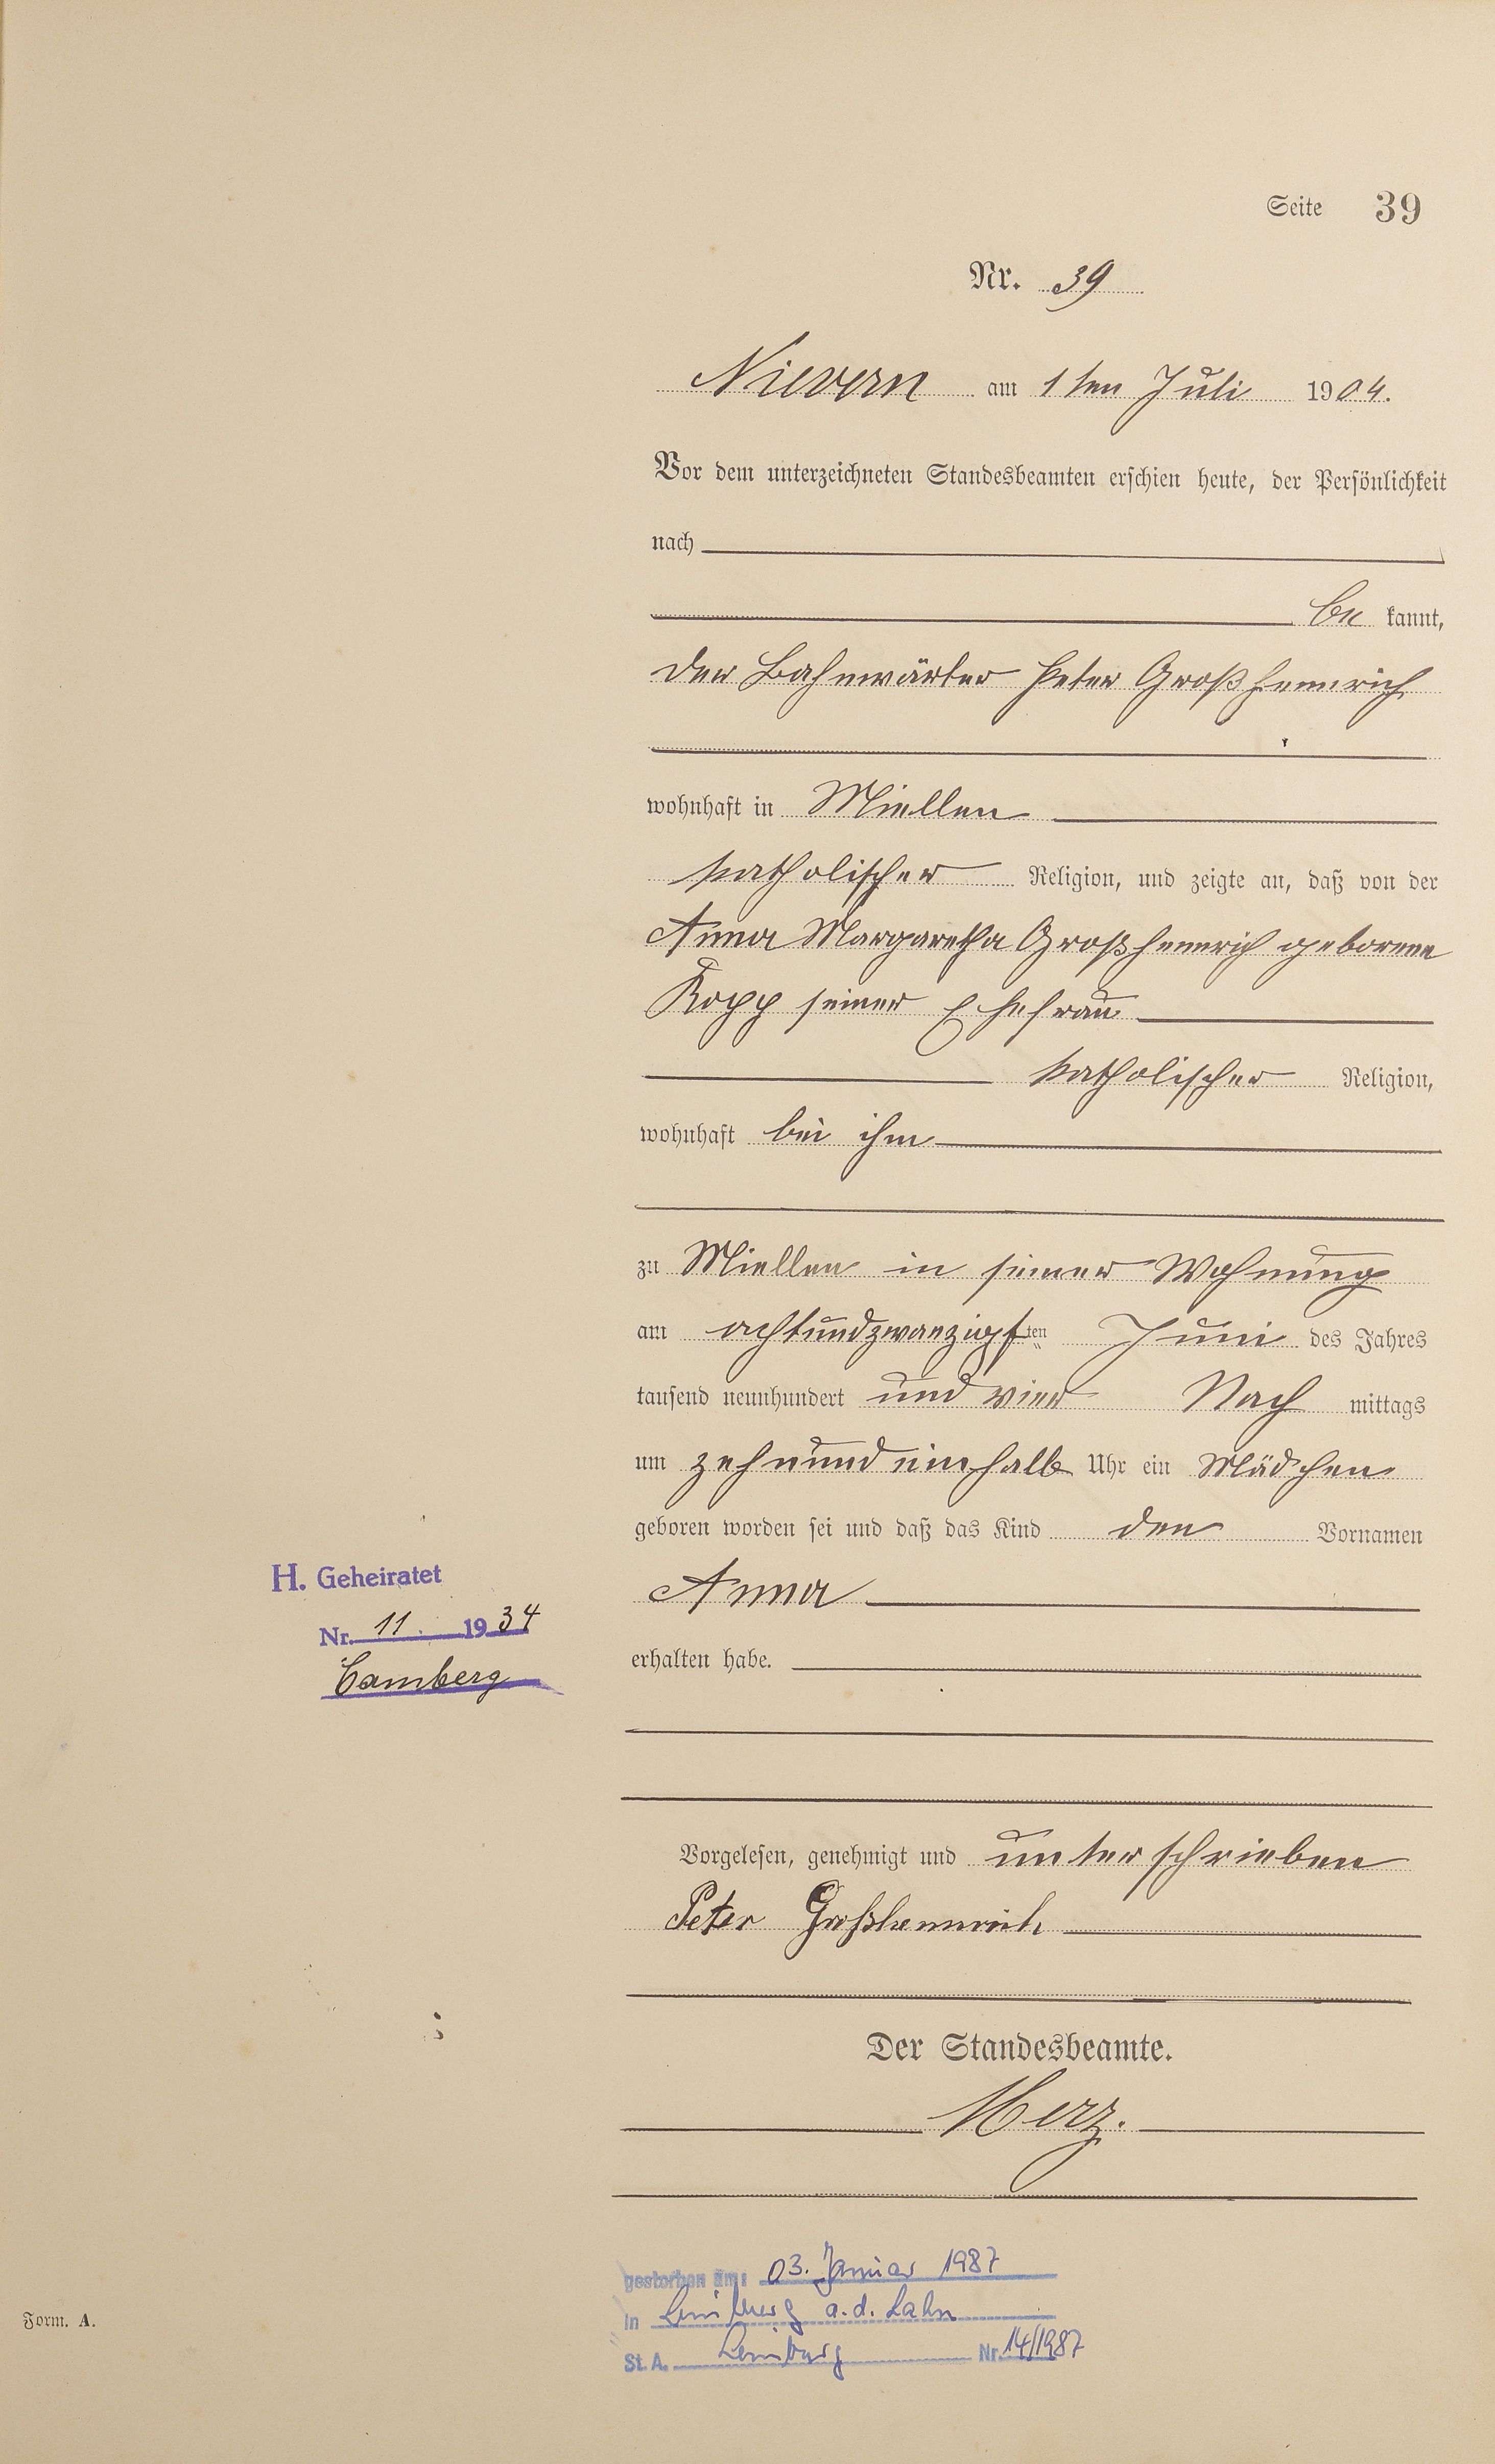 Seite 39
Nr. 39
Nievern am 1ten Juli 1904.
Vor dem unterzeichneten Standesbeamten erschien heute, der Persönlichkeit
nach
be kannt,
der Bahnwärter Peter Großhennrich
wohnhaft in Miellen
katholischer Religion, und zeigte an, daß von der
Anna Margaretha Großhennrich geborene
Kopp seiner Ehefrau
katholischer Religion,
wohnhaft bei ihm
zu Miellen in seiner Wohnung
am achtundzwanzigsten Juni des Jahres
tausend neunhundert und vier Nach mittags
um zehnundeinhalb Uhr ein Mädchen
geboren worden sei und daß das Kind den Vornamen
H. Geheiratet
Anna
Nr. 11. 1934
erhalten habe.
Camberg
Vorgelesen, genehmigt und unterschrieben
Peter Großhennrich
Der Standesbeamte.
Merz.
gestorben am: 03. Januar 1987
in Limburg a.d. Lahn
St. A. Limburg Nr. 14/1987
Form. A.